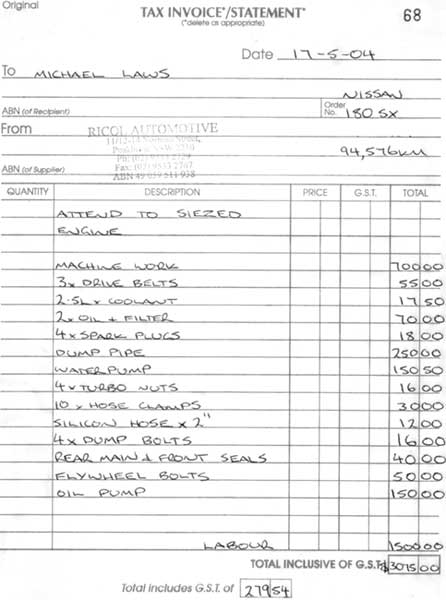 Original
TAX INVOICE*/STATEMENT*
(*delete as appropriate)
68
Date 17-5-04
To MICHAEL LAWS
NISSAN
ABN (of Recipient) Order No. 180 SX
From RICOL AUTOMOTIVE
11/12-14 Street,
NSW 2210
94,576KM
Ph: (02)
Fax: (02) 2767
ABN (of Supplier) ABN 49 059 511 938
QUANTITY DESCRIPTION PRICE G.S.T. TOTAL
ATTEND TO SIEZED
ENGINE
MACHINE WORK 700 00
3x DRIVE BELTS 55 00
2.5L x COOLANT 17 50
2x OIL + FILTER 70 00
4x SPARK PLUGS 18 00
DUMP PIPE 250 00
WATER PUMP 150 50
4x TURBO NUTS 16 00
10 x HOSE CLAMPS 30 00
SILICON HOSE x 2" 12 00
4x DUMP BOLTS 16 00
REAR MAIN + FRONT SEALS 40 00
FLYWHEEL BOLTS 50 00
OIL PUMP 150 00
LABOUR 1500 00
TOTAL INCLUSIVE OF G.S.T. $3075 00
Total includes G.S.T. of 279 54